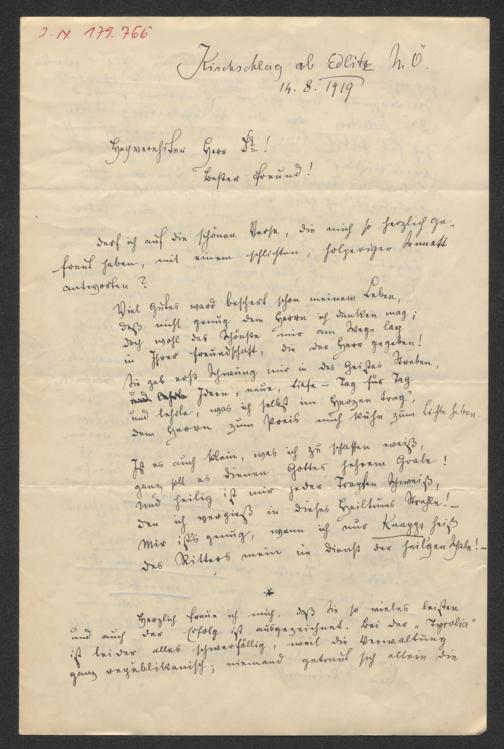 J. N. 179.766
Kirchschlag ab Edlitz N. Ö.
14. 8. 1919
Hochverehrter Herr Dr!
Bester Freund!
Darf ich auf die schönen Verse, die mich so herzlich ge-
freut haben, mit einem schlichten, holperigen Sonnett
antworten?
Viel Gutes ward beschert schon meinem Leben,
daß nicht genug dem Herrn ich danken mag;
doch wohl das Schönste mir am Wege lag
in Ihrer Freundschaft, die der Herr gegeben!
Sie gab erst Schwung mir in des Geistes Streben,
Ideen, neue, tiefe – Tag für Tag
und lehrte, was ich selbst im Herzen trag',
dem Herrn zum Preis auch kühn zum Lichte heben.
Ist es auch klein, was ich zu schaffen weiß,
ganz soll es dienen Gottes hehrem Grale!
Und heilig ist mir jeder Tropfen Schweiß,
den ich vergieß in dieses Heiltums Strahle! –
Mir ist's genug, wenn ich nur Knappe heiß
des Ritters mein im Dienst der heil'gen Schale! –
*
Herzlich freue ich mich, daß Sie so vieles leisten
und auch der Erfolg ist ausgezeichnet. Bei der „Tyrolia"
ist leider alles schwerfällig, weil die Verwaltung
ganz republikanisch; niemand getraut sich allein die